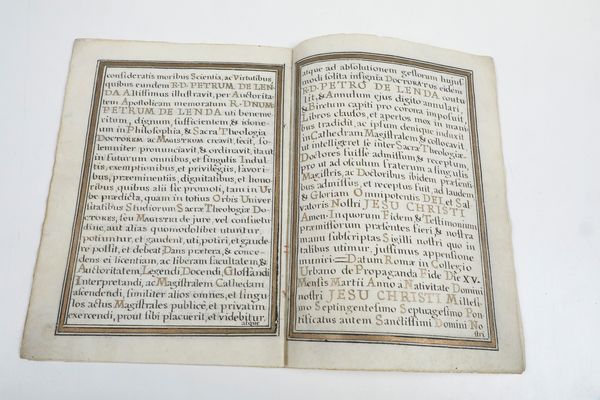 consideratis moribus Scientia, ac Virtutibus,
quibus eundem R.D. PETRUM DE LEN-
DA Altissimus illustravit, per Auctorita-
tem Apostolicam memoratum R.DNUM
PETRUM DE LENDA uti beneme-
ritum, dignum, sufficientem & idone-
um in Philosophia, & Sacra Theologia
DOCTOREM ac MAGISTRUM creavit, fecit, so-
lemniter pronunciavit, & ordinavit, ita ut
in futurum omnibus, et singulis Indul-
tis, exemptionibus, et privilegiis, favori-
bus, præeminentiis, dignitatibus, et hono-
ribus, quibus alii sic promoti, tam in Ur
be prædicta, quam in totius Orbis Univer
sitatibus Studiorum Sacræ Theologiæ Do-
CTORES, seu MAGISTRI de jure, vel consuetu
dine, aut alias quomodolibet utuntur,
potiuntur, et gaudent, uti, potiri, et gaude-
re possit, et debeat. Dans prætera, & conce-
dens ei licentiam, ac liberam facultatem, &
Auctoritatem, Legendi, Docendi, Glossandi
Interpretandi, ac Magistralem Cathedam
ascendendi, similiter alios omnes, et singu
los actus Magistrales publicè, et privatim
exercendi, prout sibi placuerit, et videbitur,
atque
atque ad absolutionem gestorum hujus-
modi solita insignia DOCTORATUS eidem
R.D. PETRO DE LENDA contu
lit, & Annulum ejus digito annulari
& Biretum capiti pro corona imposuit,
Libros clausos, et apertos mox in mani-
bus tradidit, ac ipsum denique induxit
in Cathedram Magistralem, & collocavit,
ut intelligeret se inter Sacræ Theologiæ
Doctores fuisse assumptum, & receptum,
pro ut ad osculum fraternum a singulis
Magistris, ac Doctoribus ibidem præsenti
bus admissus, et receptus fuit, ad laudem
& Gloriam Omnipotentis DEI, et Sal
vatoris Nostri JESU CHRISTI
Amen. Inquorum Fidem & Testimonium
præmissorum præsentes fieri, & nostra
manu subscriptas Sigilli nostri quo in
talibus utimur, jussimus appensione
muniri. Datum Romæ in Collegio
Urbano de Propaganda Fide Die XV.
Mensis Martii Anno a Nativitate Domini
nostri JESU CHRISTI Millesi-
mo Septingentesimo Septuagesimo Pon
tificatus autem Sanctissimi Domini No
stri